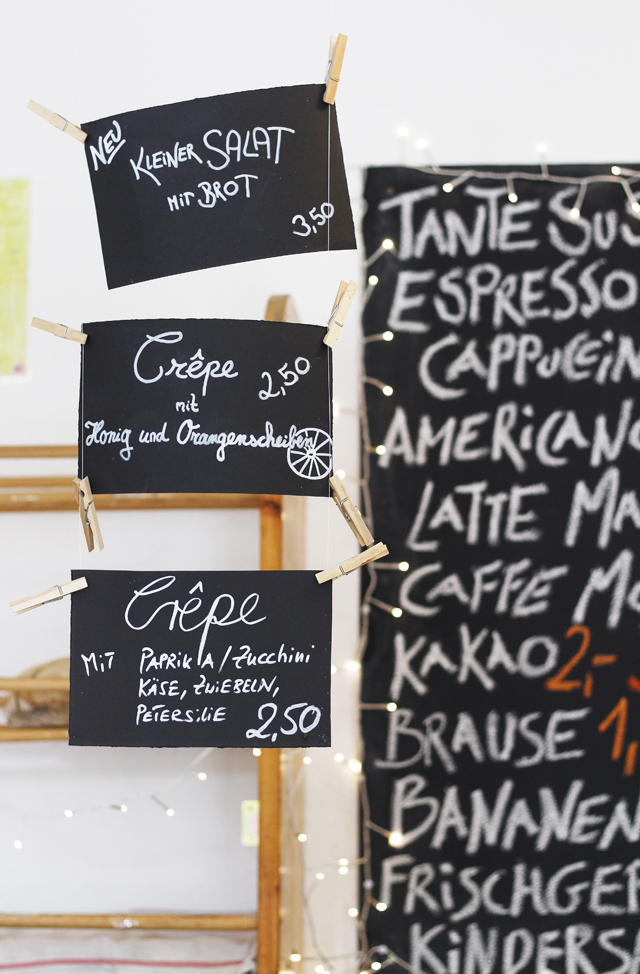 NEU
KLEINER SALAT
MIT BROT
3,50
Crêpe
2,50
mit
Honig und Orangenscheiben
Crêpe
MIT PAPRIKA / Zucchini
KÄSE, ZWIEBELN,
PETERSILIE 2,50
TANTE SUS
ESPRESSO
CAPPUCCIN
AMERICANO
LATTE MA
CAFFE MO
KAKAO 2,-
BRAUSE 1,
BANANEN
FRISCHGEP
KINDERS